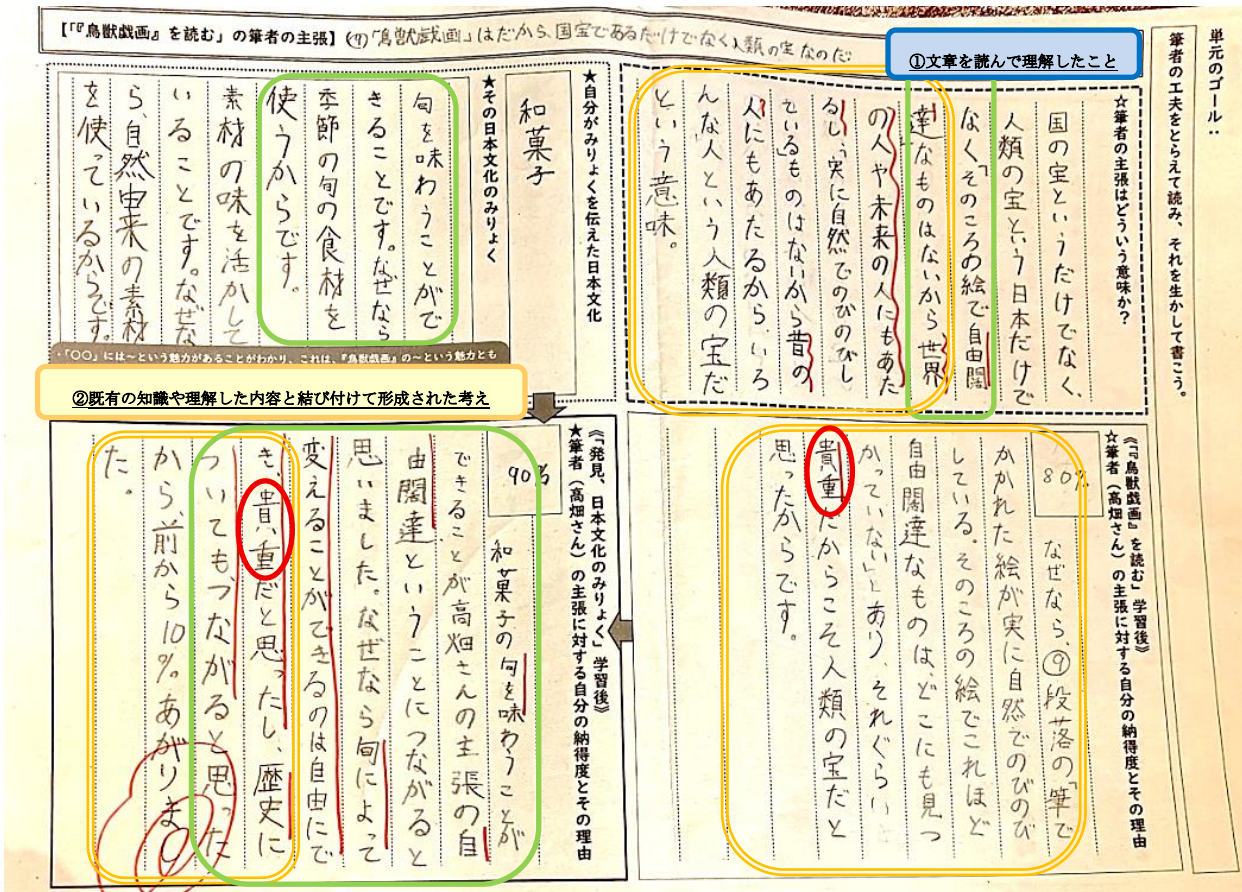 単元のゴール：
筆者の工夫をとらえて読み、それを生かして書こう。
【「『鳥獣戯画』を読む」の筆者の主張】(9)「鳥獣戯画」はだから、国宝であるだけでなく人類の宝なのだ
①文章を読んで理解したこと
☆筆者の主張はどういう意味か？
国の宝というだけでなく、
人類の宝という日本だけで
なく「そのころの絵で自由闊
達なものはないから世界
の人や未来の人にもあた
るし、実に自然でのびのびし
ているものはないから昔の
人にもあたるから、いろ
んな人という人類の宝だ
という意味。
★自分がみりょくを伝えた日本文化
和菓子
★その日本文化のみりょく
旬を味わうことがで
きることです。なぜなら
季節の旬の食材を
使うからです。
素材の味を活かして
いることです。なぜな
ら、自然由来の素材
を使っているからです。
・「○○」には～という魅力があることがわかり、これは、『鳥獣戯画』の～という魅力とも
②既有の知識や理解した内容と結び付けて形成された考え
《「『鳥獣戯画』を読む」学習後》
☆筆者（高畑さん）の主張に対する自分の納得度とその理由
80%
なぜなら、⑨段落の「筆で
かかれた絵が実に自然でのびのび
している。そのころの絵でこれほど
自由闊達なものは、どこにも見つ
かっていない」とあり、それぐらい
貴重だからこそ人類の宝だと
思ったからです。
《「発見、日本文化のみりょく」学習後》
★筆者（高畑さん）の主張に対する自分の納得度とその理由
90%
和菓子の旬を味わうことが
できることが高畑さんの主張の自
由闊達ということにつながると
思いました。なぜなら旬によって
変えることができるのは自由にで
き、貴重だと思ったし、歴史に
ついてもつながると思った
から、前から10%あがりまし
た。